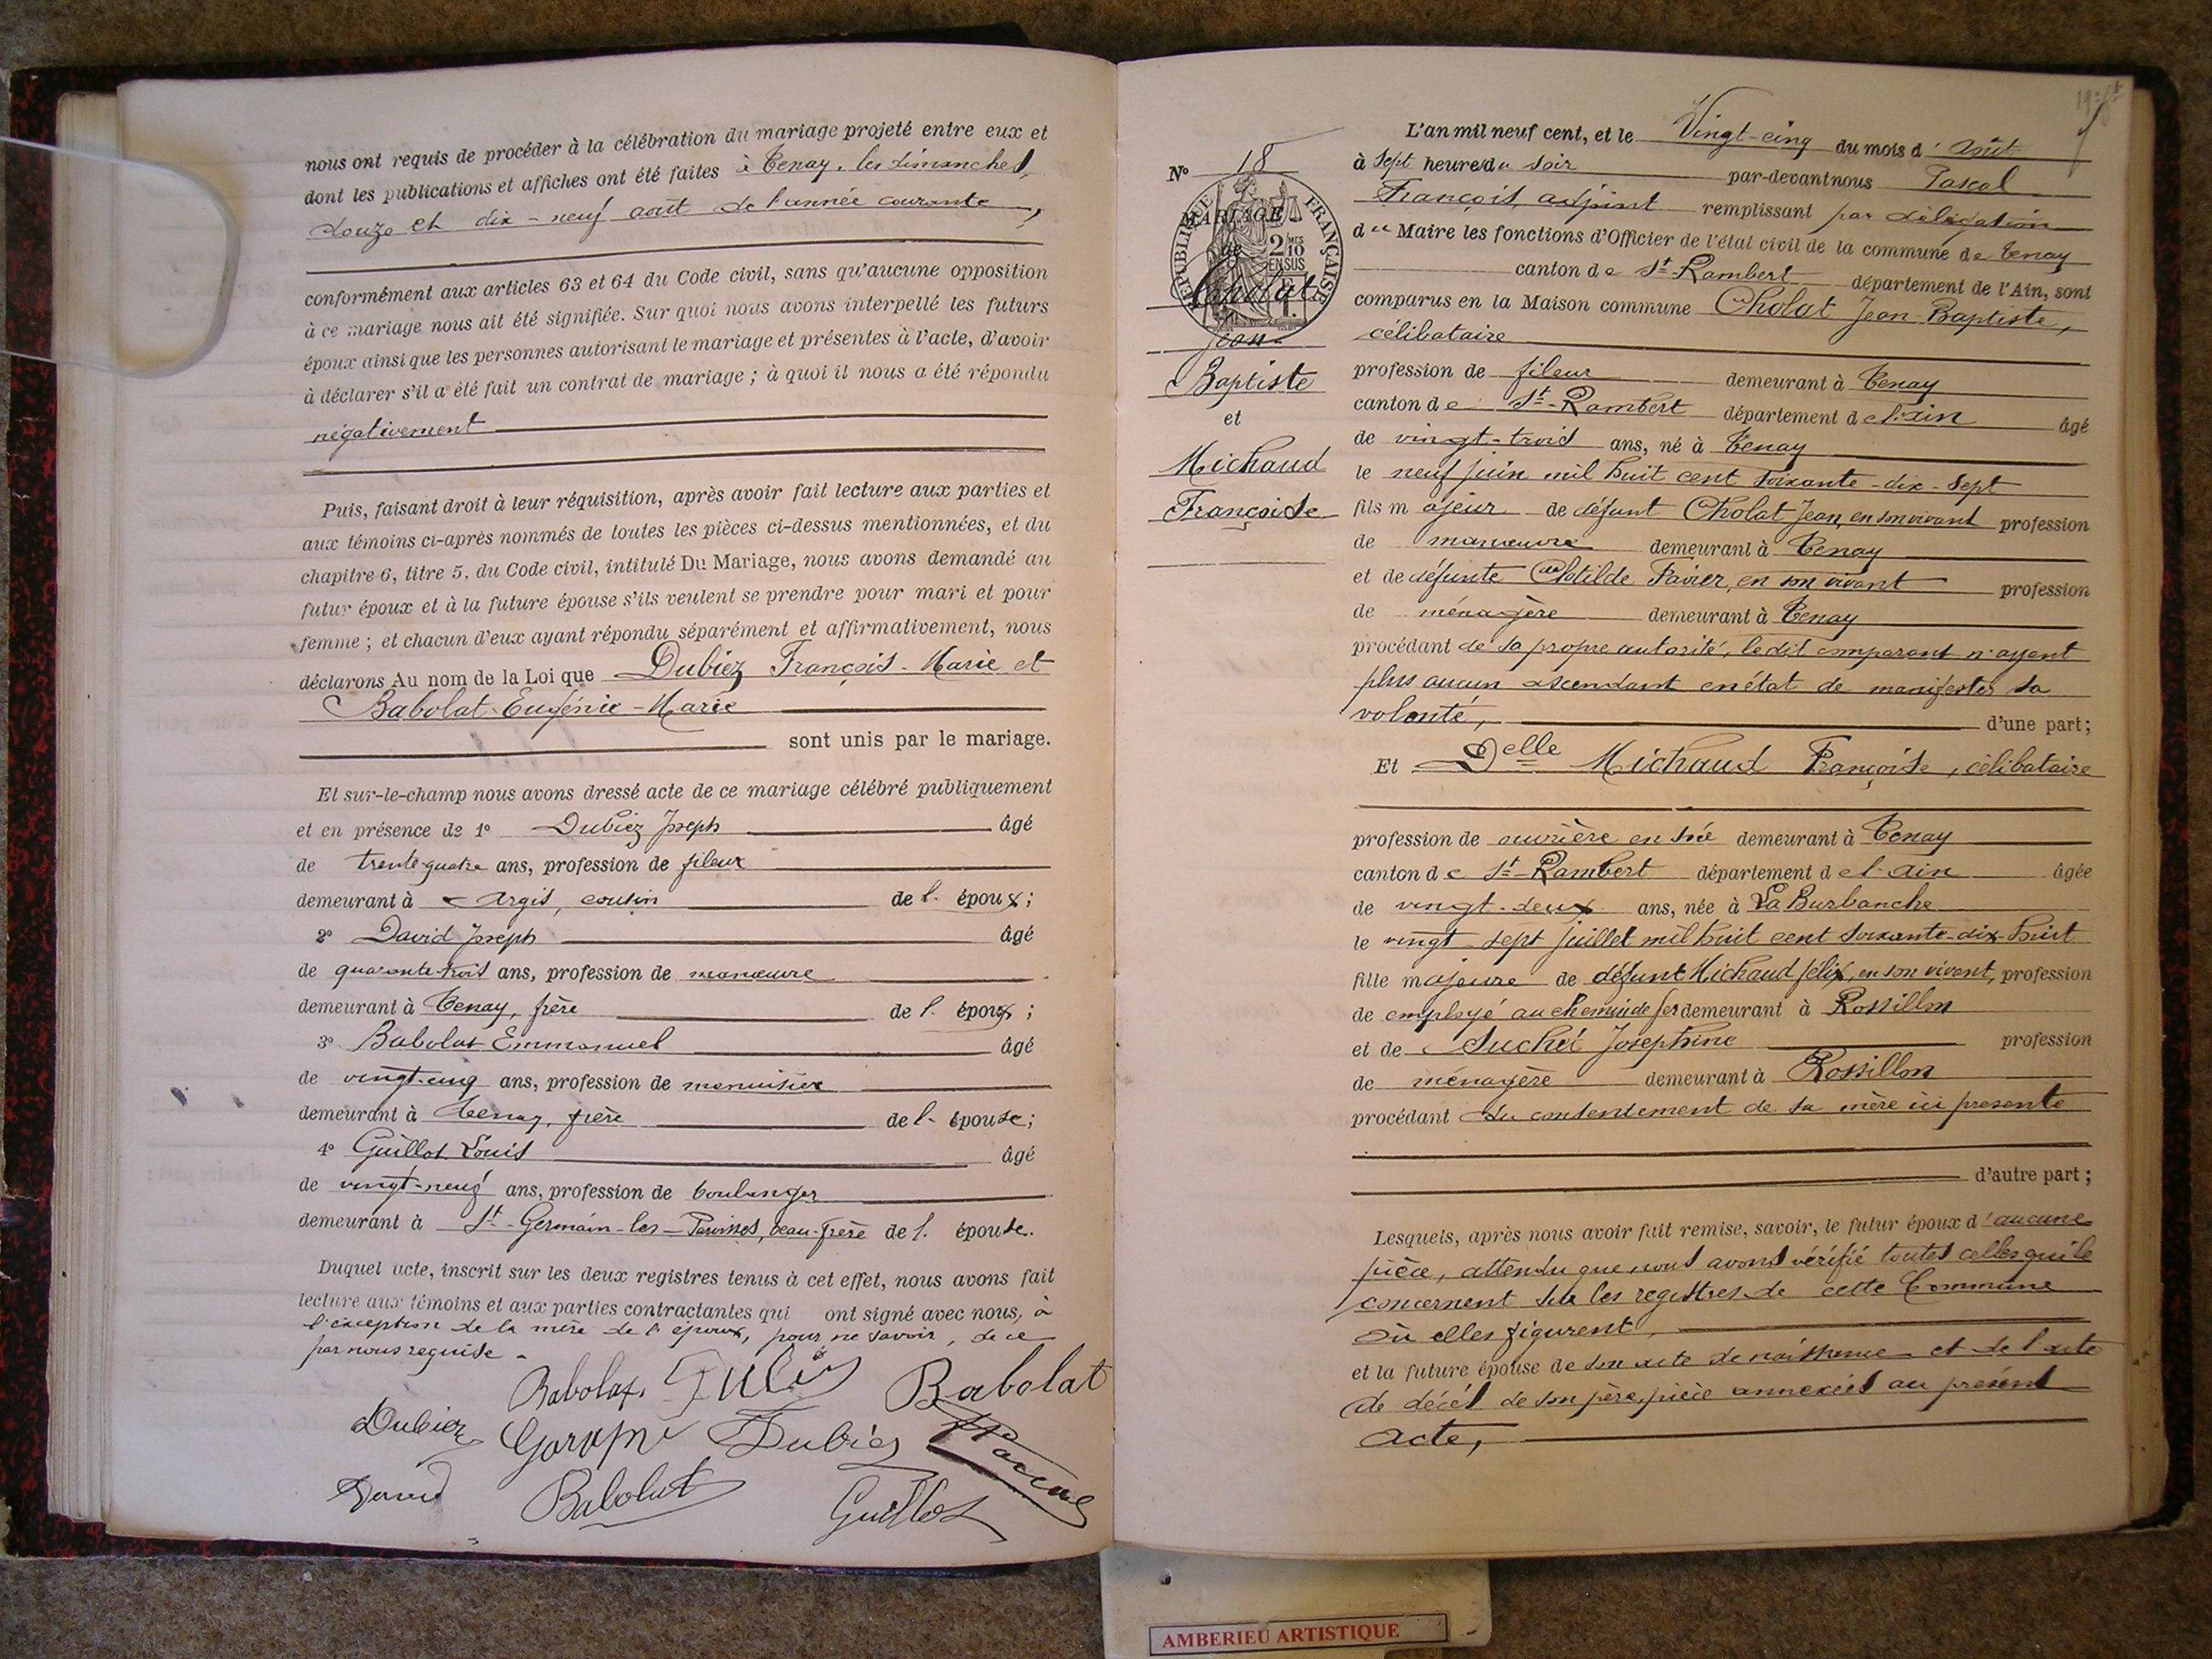 nous ont requis de procéder à la célébration du mariage projeté entre eux et
dont les publications et affiches ont été faites à Tenay, les dimanches
douze et dix-neuf août de l'année courante,
conformément aux articles 63 et 64 du Code civil, sans qu'aucune opposition
à ce mariage nous ait été signifiée. Sur quoi nous avons interpellé les futurs
époux ainsi que les personnes autorisant le mariage et présentes à l'acte, d'avoir
à déclarer s'il a été fait un contrat de mariage ; à quoi il nous a été répondu
négativement
Puis, faisant droit à leur réquisition, après avoir fait lecture aux parties et
aux témoins ci-après nommés de toutes les pièces ci-dessus mentionnées, et du
chapitre 6, titre 5, du Code civil, intitulé Du Mariage, nous avons demandé au
futur époux et à la future épouse s'ils veulent se prendre pour mari et pour
femme ; et chacun d'eux ayant répondu séparément et affirmativement, nous
déclarons Au nom de la Loi que Dubiez François-Marie et
Babolat Eugénie-Marie
sont unis par le mariage.
Et sur-le-champ nous avons dressé acte de ce mariage célébré publiquement
et en présence de 1° Dubiez Joseph âgé
de trente-quatre ans, profession de fileur
demeurant à Argis, cousin de l. époux ;
2° David Joseph âgé
de quarante-trois ans, profession de manœuvre
demeurant à Tenay, frère de l. époux ;
3° Babolat Emmanuel âgé
de vingt-cinq ans, profession de menuisier
demeurant à Tenay, frère de l. épouse ;
4° Guillot Louis âgé
de vingt-neuf ans, profession de boulanger
demeurant à St-Germain-les-Paroisses, beau-frère de l. épouse.
Duquel acte, inscrit sur les deux registres tenus à cet effet, nous avons fait
lecture aux témoins et aux parties contractantes qui ont signé avec nous, à
l'exception de la mère de l'époux, pour ne savoir, de ce
par nous requise.
Babolat Dubiez Babolat
Dubiez Dubiez Pascal
David Babolat Guillot
L'an mil neuf cent, et le Vingt-cinq du mois d'août
à sept heures du soir par-devant nous Pascal
François, adjoint remplissant par délégation
du Maire les fonctions d'Officier de l'état civil de la commune de Tenay
canton de St-Rambert département de l'Ain, sont
comparus en la Maison commune Cholat Jean-Baptiste,
célibataire
profession de fileur demeurant à Tenay
canton de St-Rambert département de l'Ain âgé
de vingt-trois ans, né à Tenay
le neuf juin mil huit cent soixante-dix-sept
fils majeur de défunt Cholat Jean, en son vivant profession
de manœuvre demeurant à Tenay
et de défunte Clotilde Favier, en son vivant profession
de ménagère demeurant à Tenay
procédant de sa propre autorité, le dit comparant n'ayant
plus aucun ascendant en état de manifester sa
volonté, d'une part ;
Et Delle Michaud Françoise, célibataire
profession de ouvrière en soie demeurant à Tenay
canton de St-Rambert département de l'Ain âgée
de vingt-deux ans, née à La Burbanche
le vingt-sept juillet mil huit cent soixante-dix-huit
fille majeure de défunt Michaud félix, en son vivant, profession
de employé au chemin de fer demeurant à Rossillon
et de Suchet Joséphine profession
de ménagère demeurant à Rossillon
procédant du consentement de sa mère ici présente
d'autre part ;
Lesquels, après nous avoir fait remise, savoir, le futur époux d'aucune
pièce, attendu que nous avons vérifié toutes celles qui le
concernent sur les registres de cette Commune
où elles figurent,
et la future épouse de son acte de naissance et de l'acte
de décès de son père, pièce annexées au présent
acte,
N° 18
MARIAGE
de
Cholat
Jean-
Baptiste
et
Michaud
Françoise
RÉPUBLIQUE FRANÇAISE
2 MES 10
EN SUS
AMBERIEU ARTISTIQUE